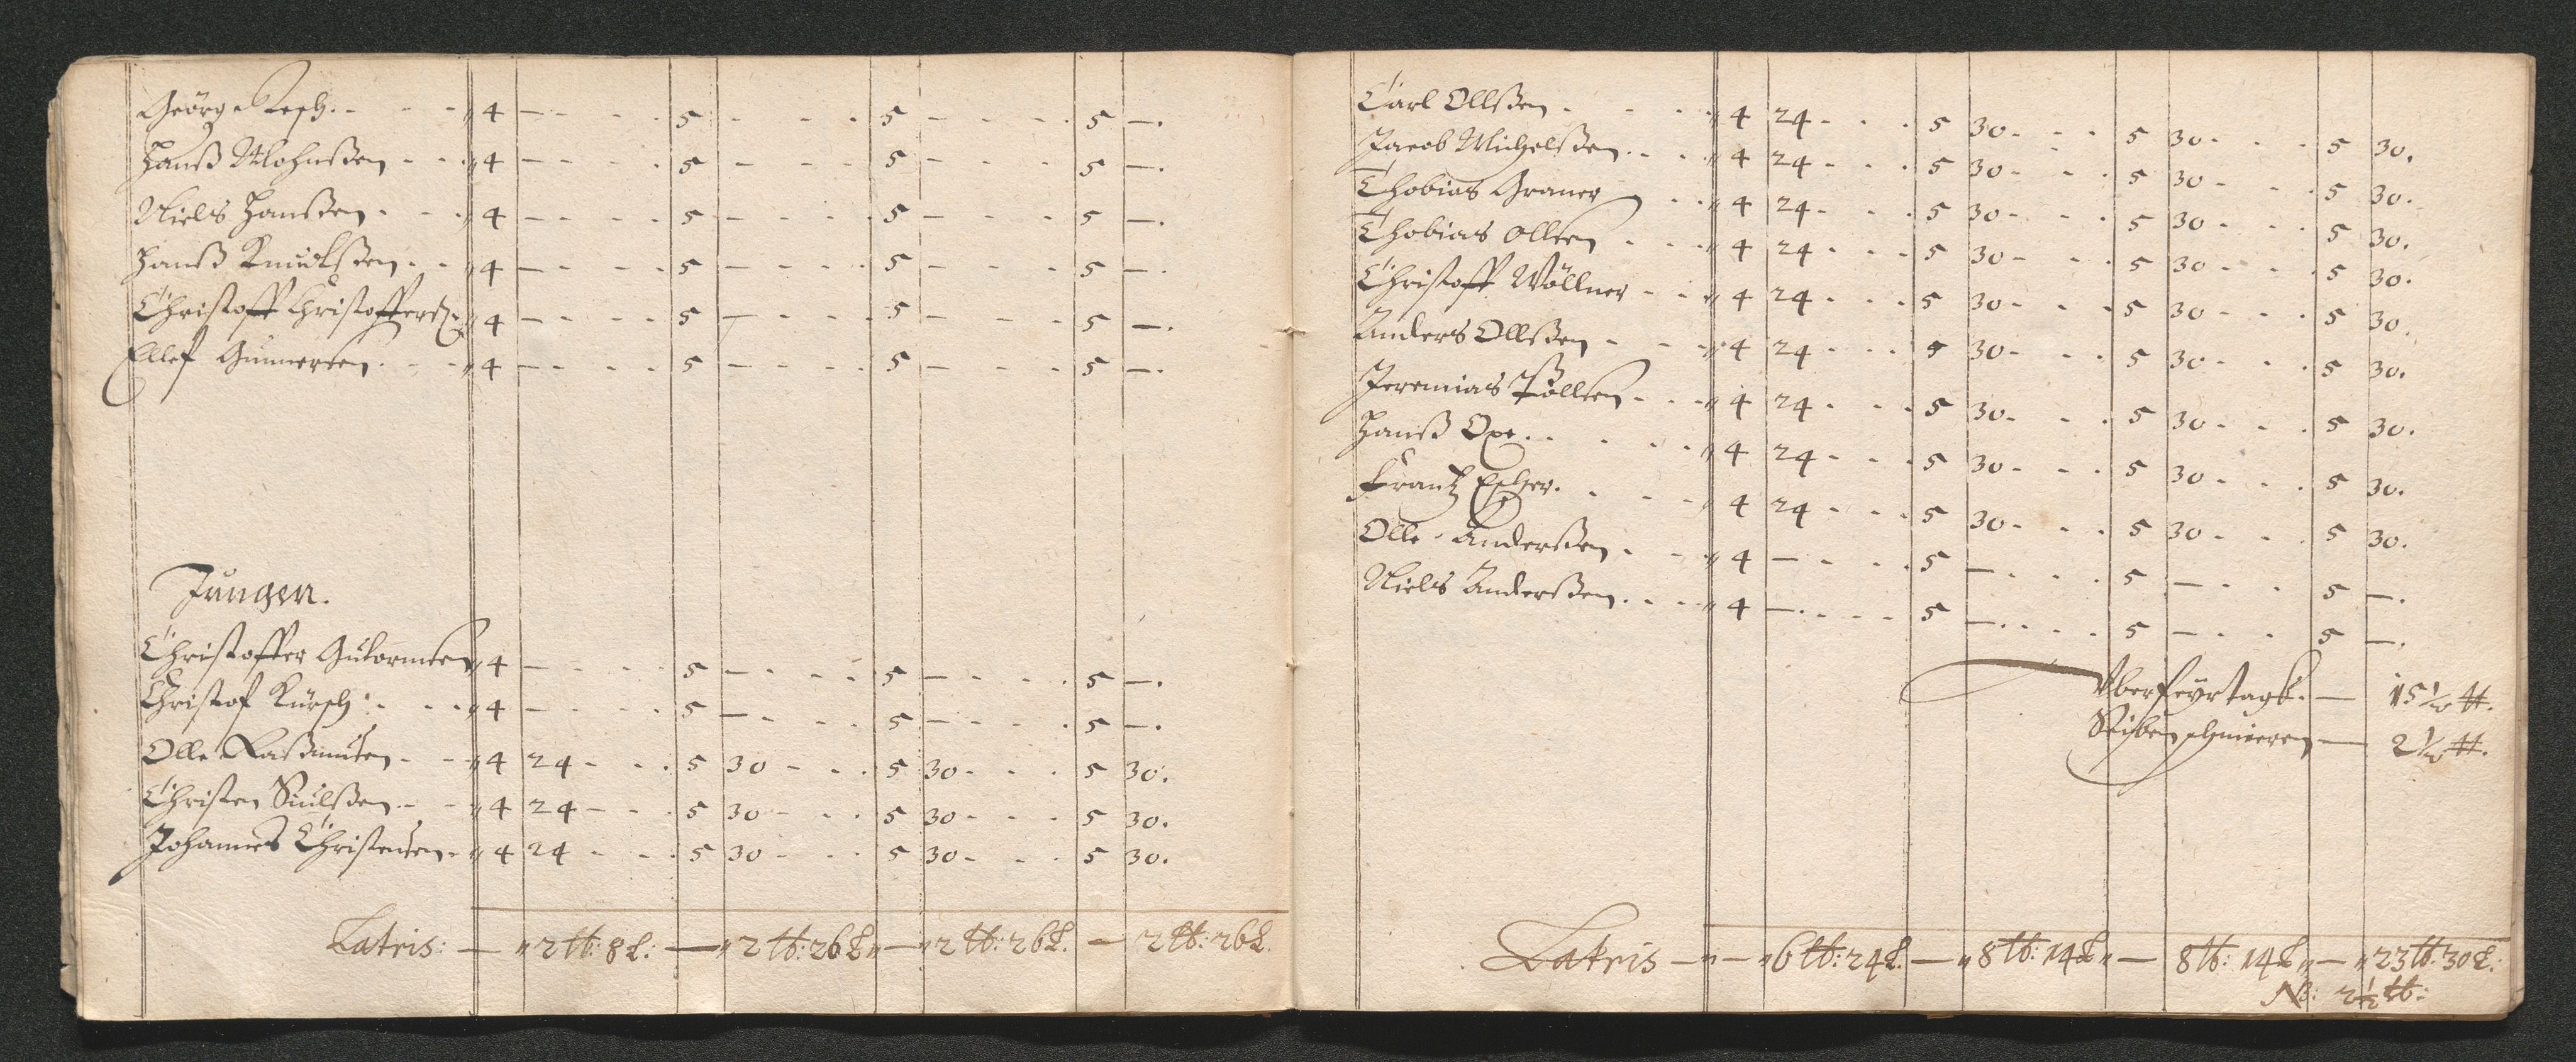 Geörg Resch. - - - „ 4 — - - - 5 - - - 5 — - - - 5 —.
Hanß Mohnßen - - - „ 4 — - - - 5 — - - - 5 — - - - 5 —.
Niels Hanßen - - - „ 4 — - - - 5 — - - - 5 — - - - 5 —.
Hanß Knudtßen - - „ 4 — - - - 5 — - - - 5 — - - - 5 —.
Christoff Christoffers: „ 4 — - - - 5 — - - - 5 — - - - 5 —.
Ellef Gunnersen - - - „ 4 — - - - 5 — - - - 5 — - - - 5 —.
Jungen.
Christoffer Gutormsen „ 4 — - - - 5 — - - - 5 — - - - 5 —.
Christof Kürsch: - - - „ 4 — - - - 5 — - - - 5 — - - - 5 —.
Olle Raßmußen - - „ 4 24 - - - 5 30 - - - 5 30 - - - 5 30.
Christen Siulßen - - „ 4 24 - - - 5 30 - - - 5 30 - - - 5 30.
Johannes Christensen - „ 4 24 - - - 5 30 - - - 5 30 - - - 5 30.
Latris: — „ 2 ℔: 8 L: — „ 2 ℔: 26 L „ — „ 2 ℔: 26 L. — 2 ℔: 26 L.
Carl Ollßen - - - „ 4 24 - - - 5 30 - - - 5 30 - - - 5 30.
Jacob Michelßen - - - „ 4 24 - - - 5 30 - - - 5 30 - - - 5 30.
Thobias Graner - - „ 4 24 - - - 5 30 - - - 5 30 - - - 5 30.
Thobias Ollsen - - - „ 4 24 - - - 5 30 - - - 5 30 - - - 5 30.
Christoff Wöllner - - „ 4 24 - - - 5 30 - - - 5 30 - - - 5 30.
Anders Ollßen - - - „ 4 24 - - - 5 30 - - - 5 30 - - - 5 30.
Jeremias Pollsen - - - „ 4 24 - - - 5 30 - - - 5 30 - - - 5 30.
Hanß Oxe - - - „ 4 24 - - - 5 30 - - - 5 30 - - - 5 30.
Frantz Escher - - - 4 24 - - - 5 30 - - - 5 30 - - - 5 30.
Olle Anderßen - - - „ 4 — - - - 5 — - - - 5 — - - - 5 —.
Niels Anderßen - - - „ 4 — - - - 5 — - - - 5 — - - - 5 —.
Vber feyrtagß. — 15 1/2 ℔.
schmieren — 2 1/2 ℔.
Latris — „ — „ 6 ℔: 24 L. — „ 8 ℔: 14 L „ — 8 ℔: 14 L „ — „ 23 ℔ 30 L:
NB: 2 1/2 ℔: